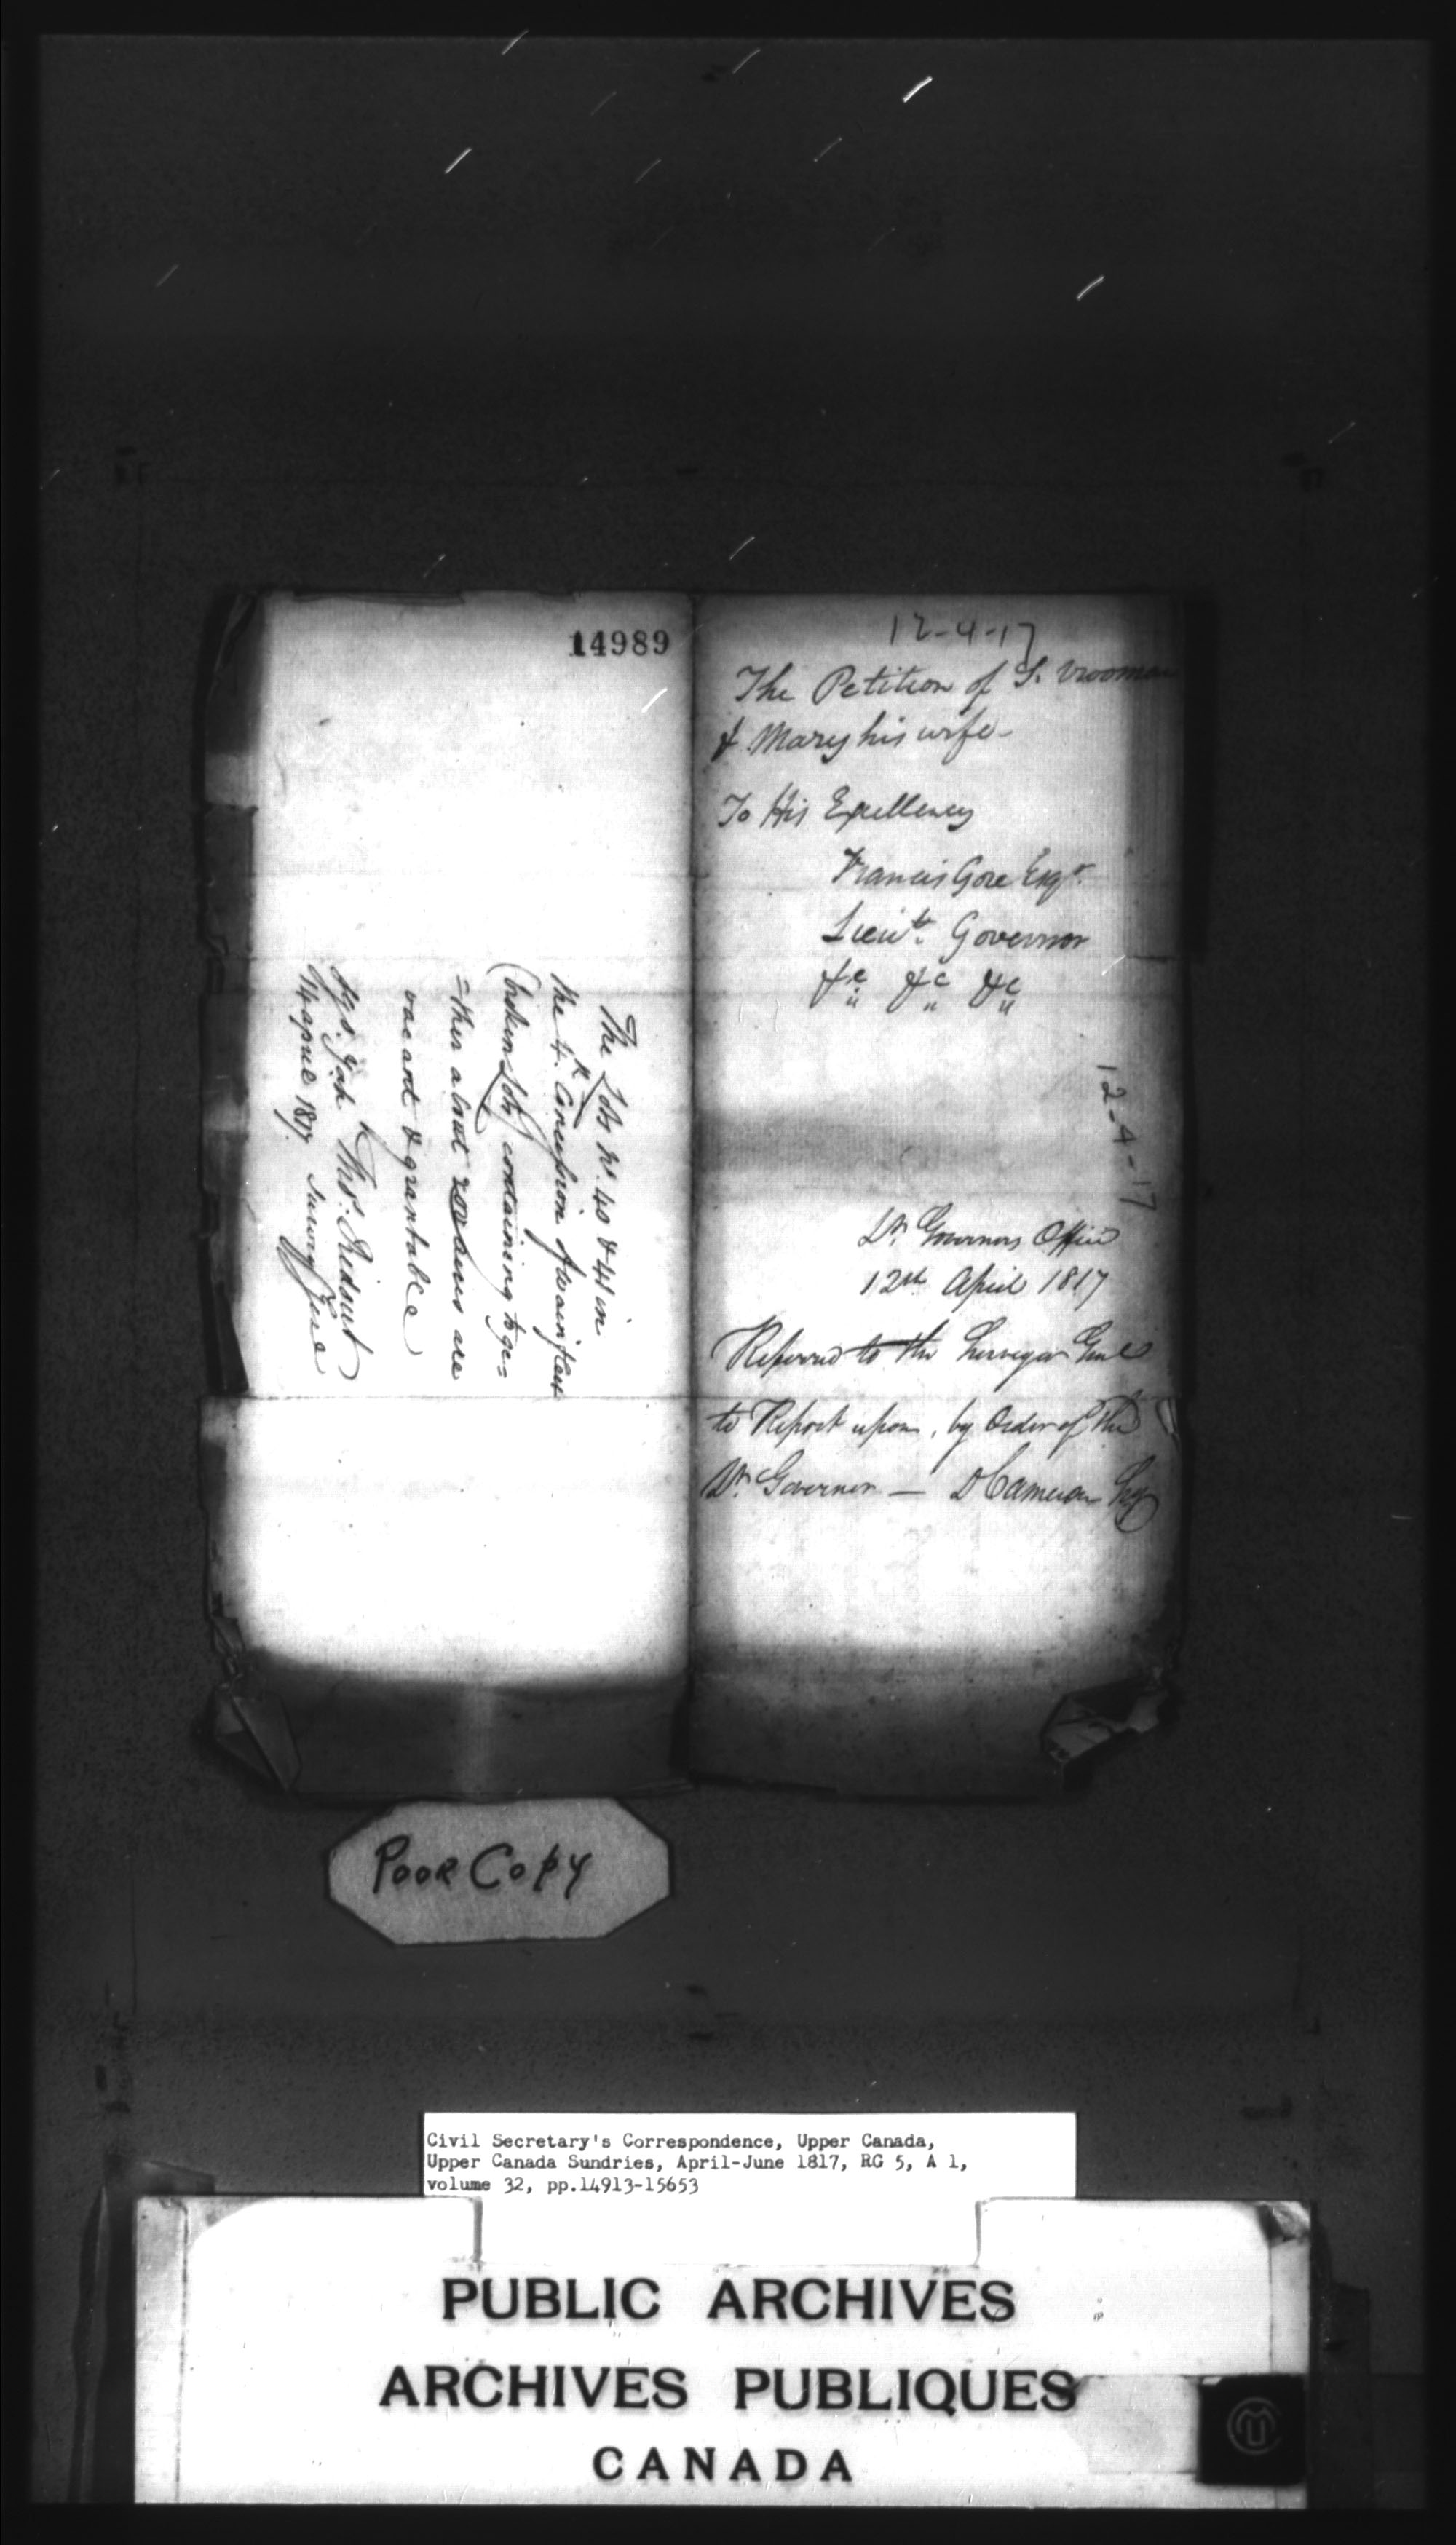 14989
The Lots No. 40 & 41 in
the 4th Concession of
(broken Lots) containing toge=
=ther about 200 acres are
vacant & grantable
Thos: Ridout
14 april 1817. Survey Genl
12-4-17
The Petition of S. Vrooman
& Mary his wife-
To His Excellency
Francis Gore Esqr.
Lieut. Governor
&c &c &c
12-4-17
Lt. Governors Office
12th April 1817
Referred to the Surveyor Genl
to Report upon, by Order of the
Lt. Governor — D Cameron Secy
POOR COPY
Civil Secretary's Correspondence, Upper Canada,
Upper Canada Sundries, April-June 1817, RG 5, A 1,
volume 32, pp.14913-15653
PUBLIC ARCHIVES
ARCHIVES PUBLIQUES
CANADA